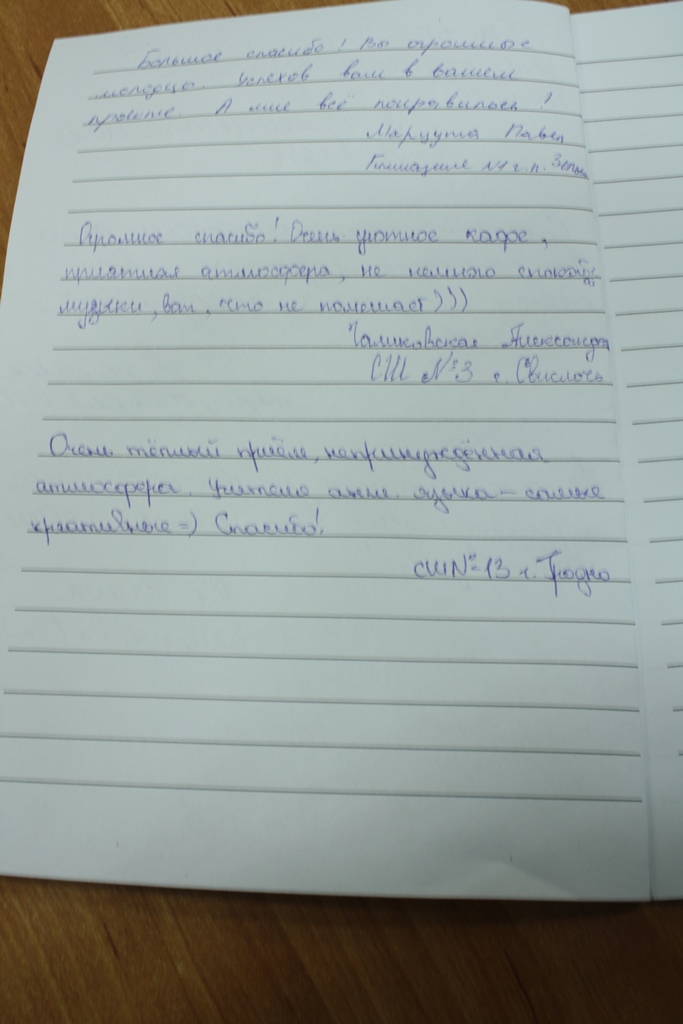 Большое спасибо! Вы огромные
молодцы. Успехов вам в вашем
проекте. А мне всё понравилось!
Марцута Павел
Гимназия №1 г.п.
Огромное спасибо! Очень уютное кафе,
приятная атмосфера, не немного
музыки, вот, что не помешает)))
Александра
СШ №3 г. Свислочь
Очень тёплый приём, непринуждённая
атмосфера. Учителя англ. языка – самые
креативные =) Спасибо!
СШ№13 г. Гродно